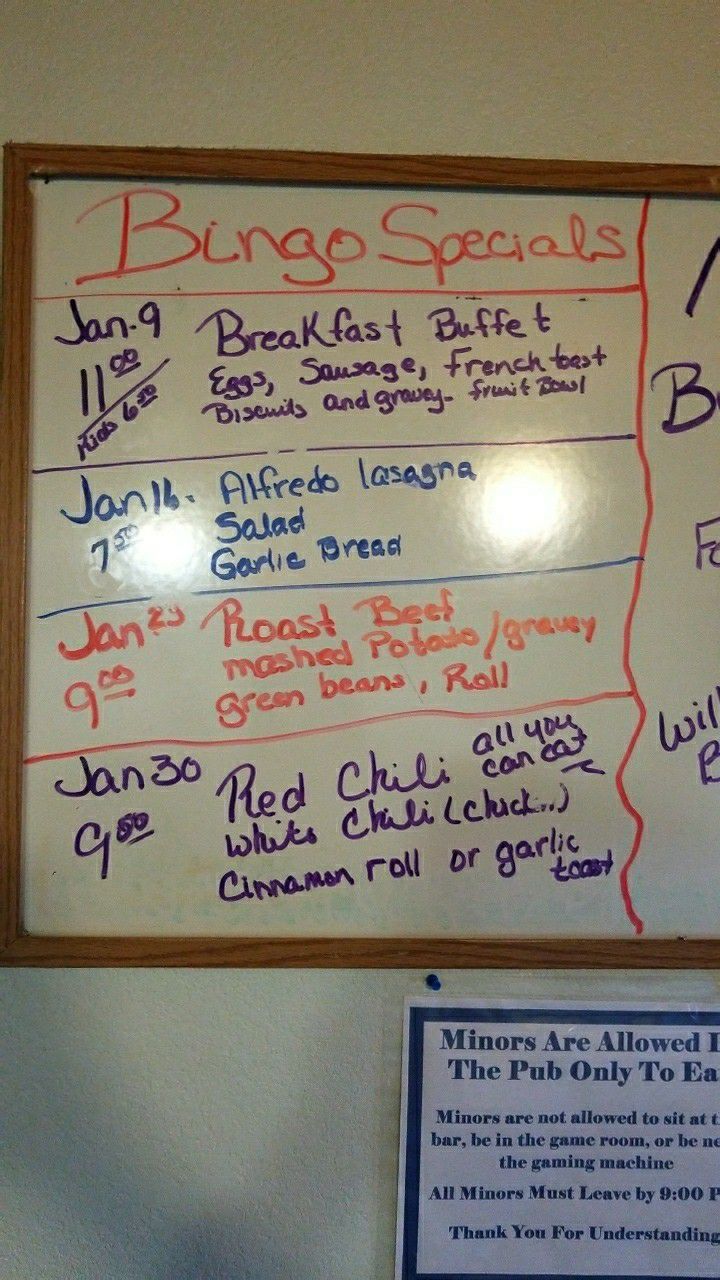 Bingo Specials
Jan. 9 Breakfast Buffet
11.00 Eggs, Sausage, french toast
Kids 6.50 Biscuits and gravey- fruit Bowl
Jan 16. Alfredo lasagna
7.50 Salad
Garlic Bread
Jan 23 Roast Beef
9.00 mashed Potato/gravey
green beans, Roll
Jan 30 Red Chili all you can eat
9.00 White Chili (Chick..)
Cinnamon roll or garlic toast
Will
Minors Are Allowed
The Pub Only To
Minors are not allowed to sit at
bar, be in the game room, or be
the gaming machine
All Minors Must Leave by 9:00
Thank You For Understanding